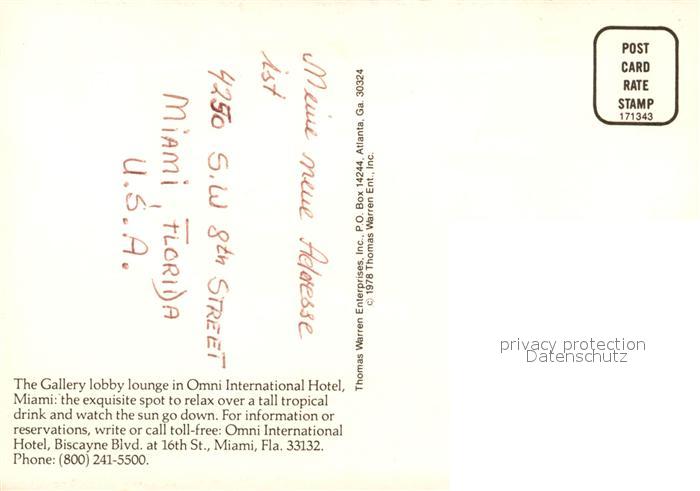 Meine neue Adresse
ist
4250 S.W 8th STREET
MiAMi, FLORIDA
U.S.A.
Thomas Warren Enterprises, Inc., P.O. Box 14244, Atlanta, Ga. 30324
© 1978 Thomas Warren Ent., Inc.
POST
CARD
RATE
STAMP
171343
privacy protection
Datenschutz
The Gallery lobby lounge in Omni International Hotel,
Miami: the exquisite spot to relax over a tall tropical
drink and watch the sun go down. For information or
reservations, write or call toll-free: Omni International
Hotel, Biscayne Blvd. at 16th St., Miami, Fla. 33132.
Phone: (800) 241-5500.